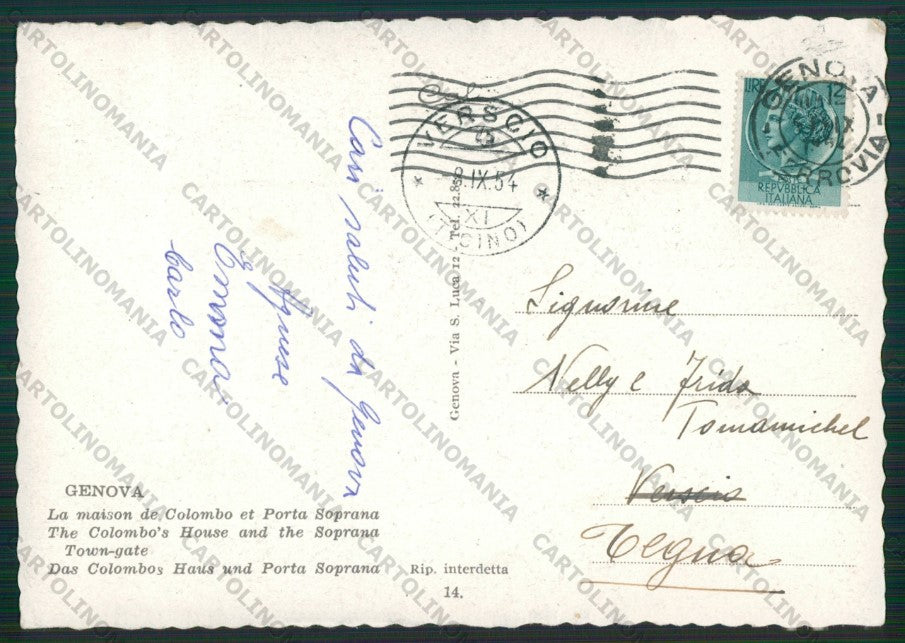 Cari saluti da Genova
e Agnese
Emma,
Carlo
GENOVA
La maison de Colombo et Porta Soprana
The Colombo's House and the Soprana
Town-gate
Das Colombos Haus und Porta Soprana
Rip. interdetta
14.
Genova - Via S. Luca 12 - Tel. 22.85
VERSCIO
-8.IX.54
XI
(TICINO)
LIRE
REPVBBLICA
ITALIANA
GENOVA
12
IX
FERROVIA
Signorine
Nelly e Frida
Tomamichel
Verscio
Tegna
CARTOLINOMANIA